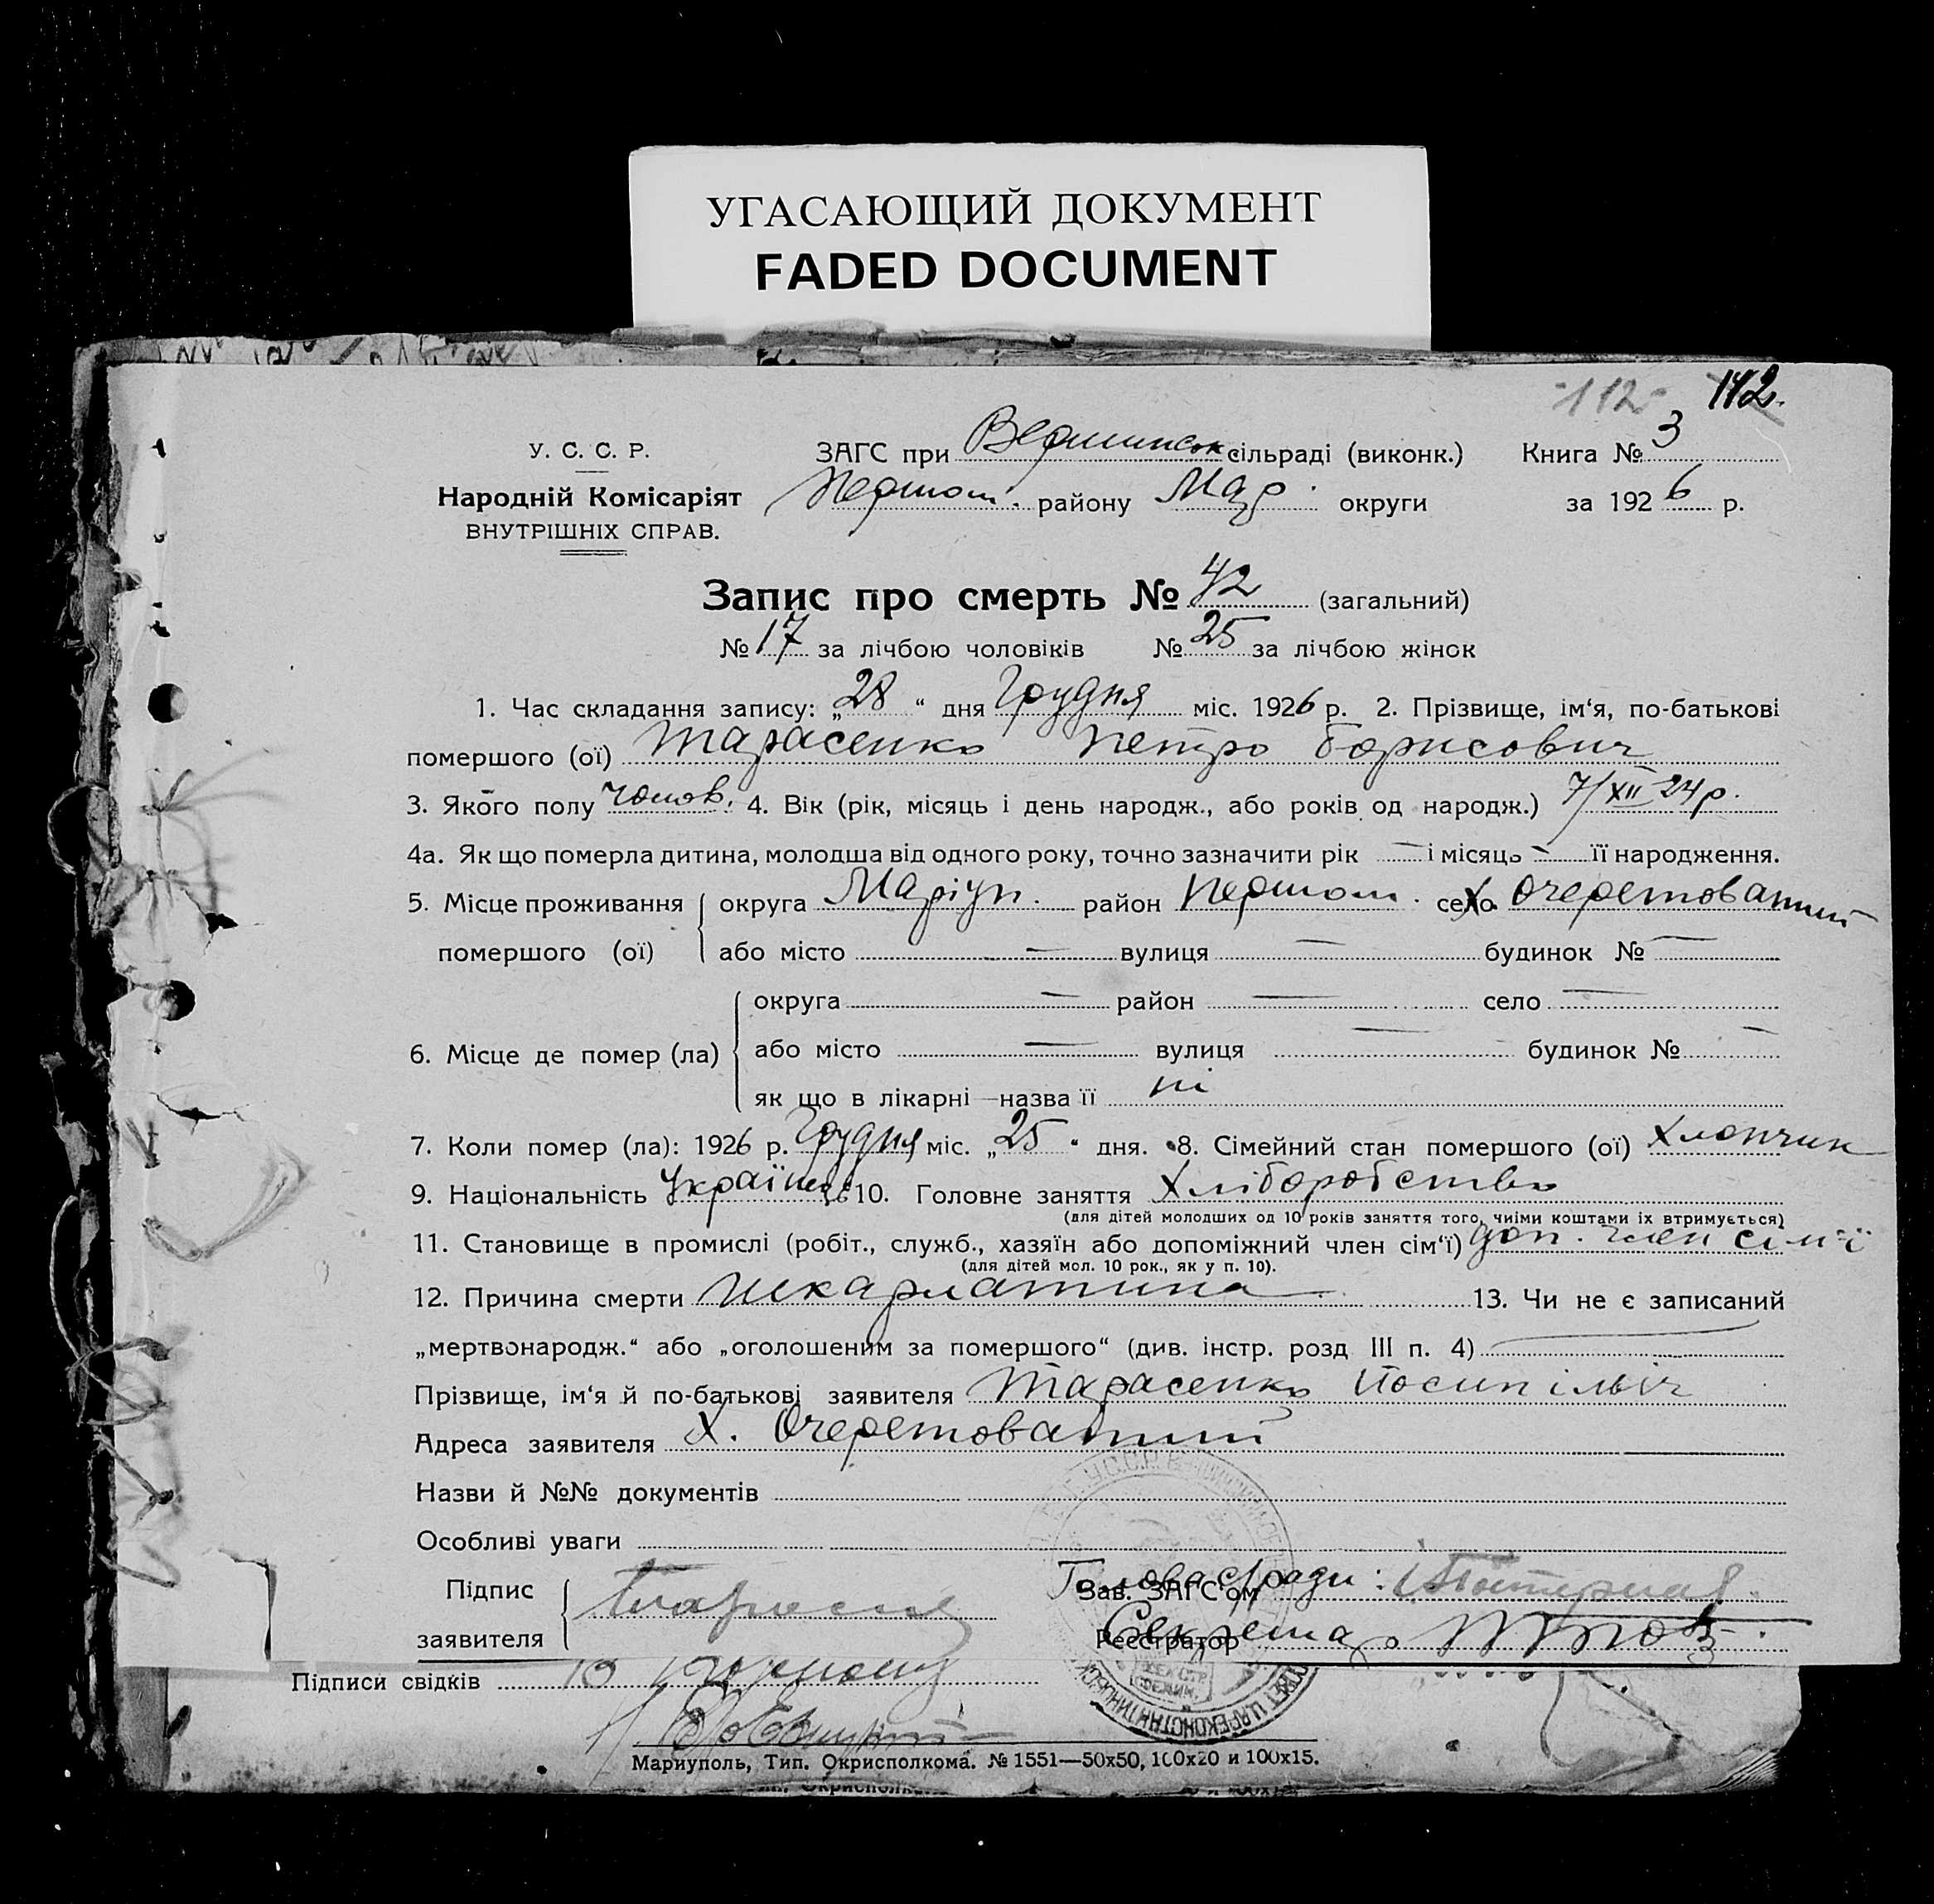 УГАСАЮЩИЙ ДОКУМЕНТ
FADED DOCUMENT
112 112.
У. С. С. Р. ЗАГС при Вершинськ сільраді (виконк.) Книга № 3
Народній Комісаріят Першотр. району Мар. округи за 1926 р.
ВНУТРІШНІХ СПРАВ.
Запис про смерть № 42 (загальний)
№ 17 за лічбою чоловіків № 25 за лічбою жінок
1. Час складання запису: „28“ дня Грудня міс. 1926 р. 2. Прізвище, ім‘я, по-батькові
помершого (ої) Тарасенко Петро Борисович
3. Якого полу чолов. 4. Вік (рік, місяць і день народж., або років од народж.) 7/XII 24 р.
4а. Як що померла дитина, молодша від одного року, точно зазначити рік — і місяць — її народження.
5. Місце проживання округа Маріуп. район Першом. село х. Очеретоватий
помершого (ої) або місто — вулиця — будинок № —
округа — район — село —
6. Місце де помер (ла) або місто — вулиця — будинок № —
як що в лікарні—назва її ні
7. Коли помер (ла): 1926 р. Грудня міс. „25“ дня. 8. Сімейний стан помершого (ої) хлопчик
9. Національність Українець 10. Головне заняття Хліборобство
(для дітей молодших од 10 років заняття того, чиїми коштами їх втримується)
11. Становище в промислі (робіт., служб., хазяїн або допоміжний член сім‘ї) доп. член сім'ї
(для дітей мол. 10 рок., як у п. 10).
12. Причина смерти шкарлатина 13. Чи не є записаний
„мертвонародж.“ або „оголошеним за помершого“ (див. інстр. розд III п. 4) —
Прізвище, ім‘я й по-батькові заявителя Тарасенко Йосип ільіч
Адреса заявителя х. Очеретоватий
Назви й №№ документів
Особливі уваги
Підпис Голова с/ради:
Зав. ЗАГС'ом
заявителя Секретар
Реєстратор
Підписи свідків
Мариуполь, Тип. Окрисполкома. № 1551—50х50, 100х20 и 100х15.